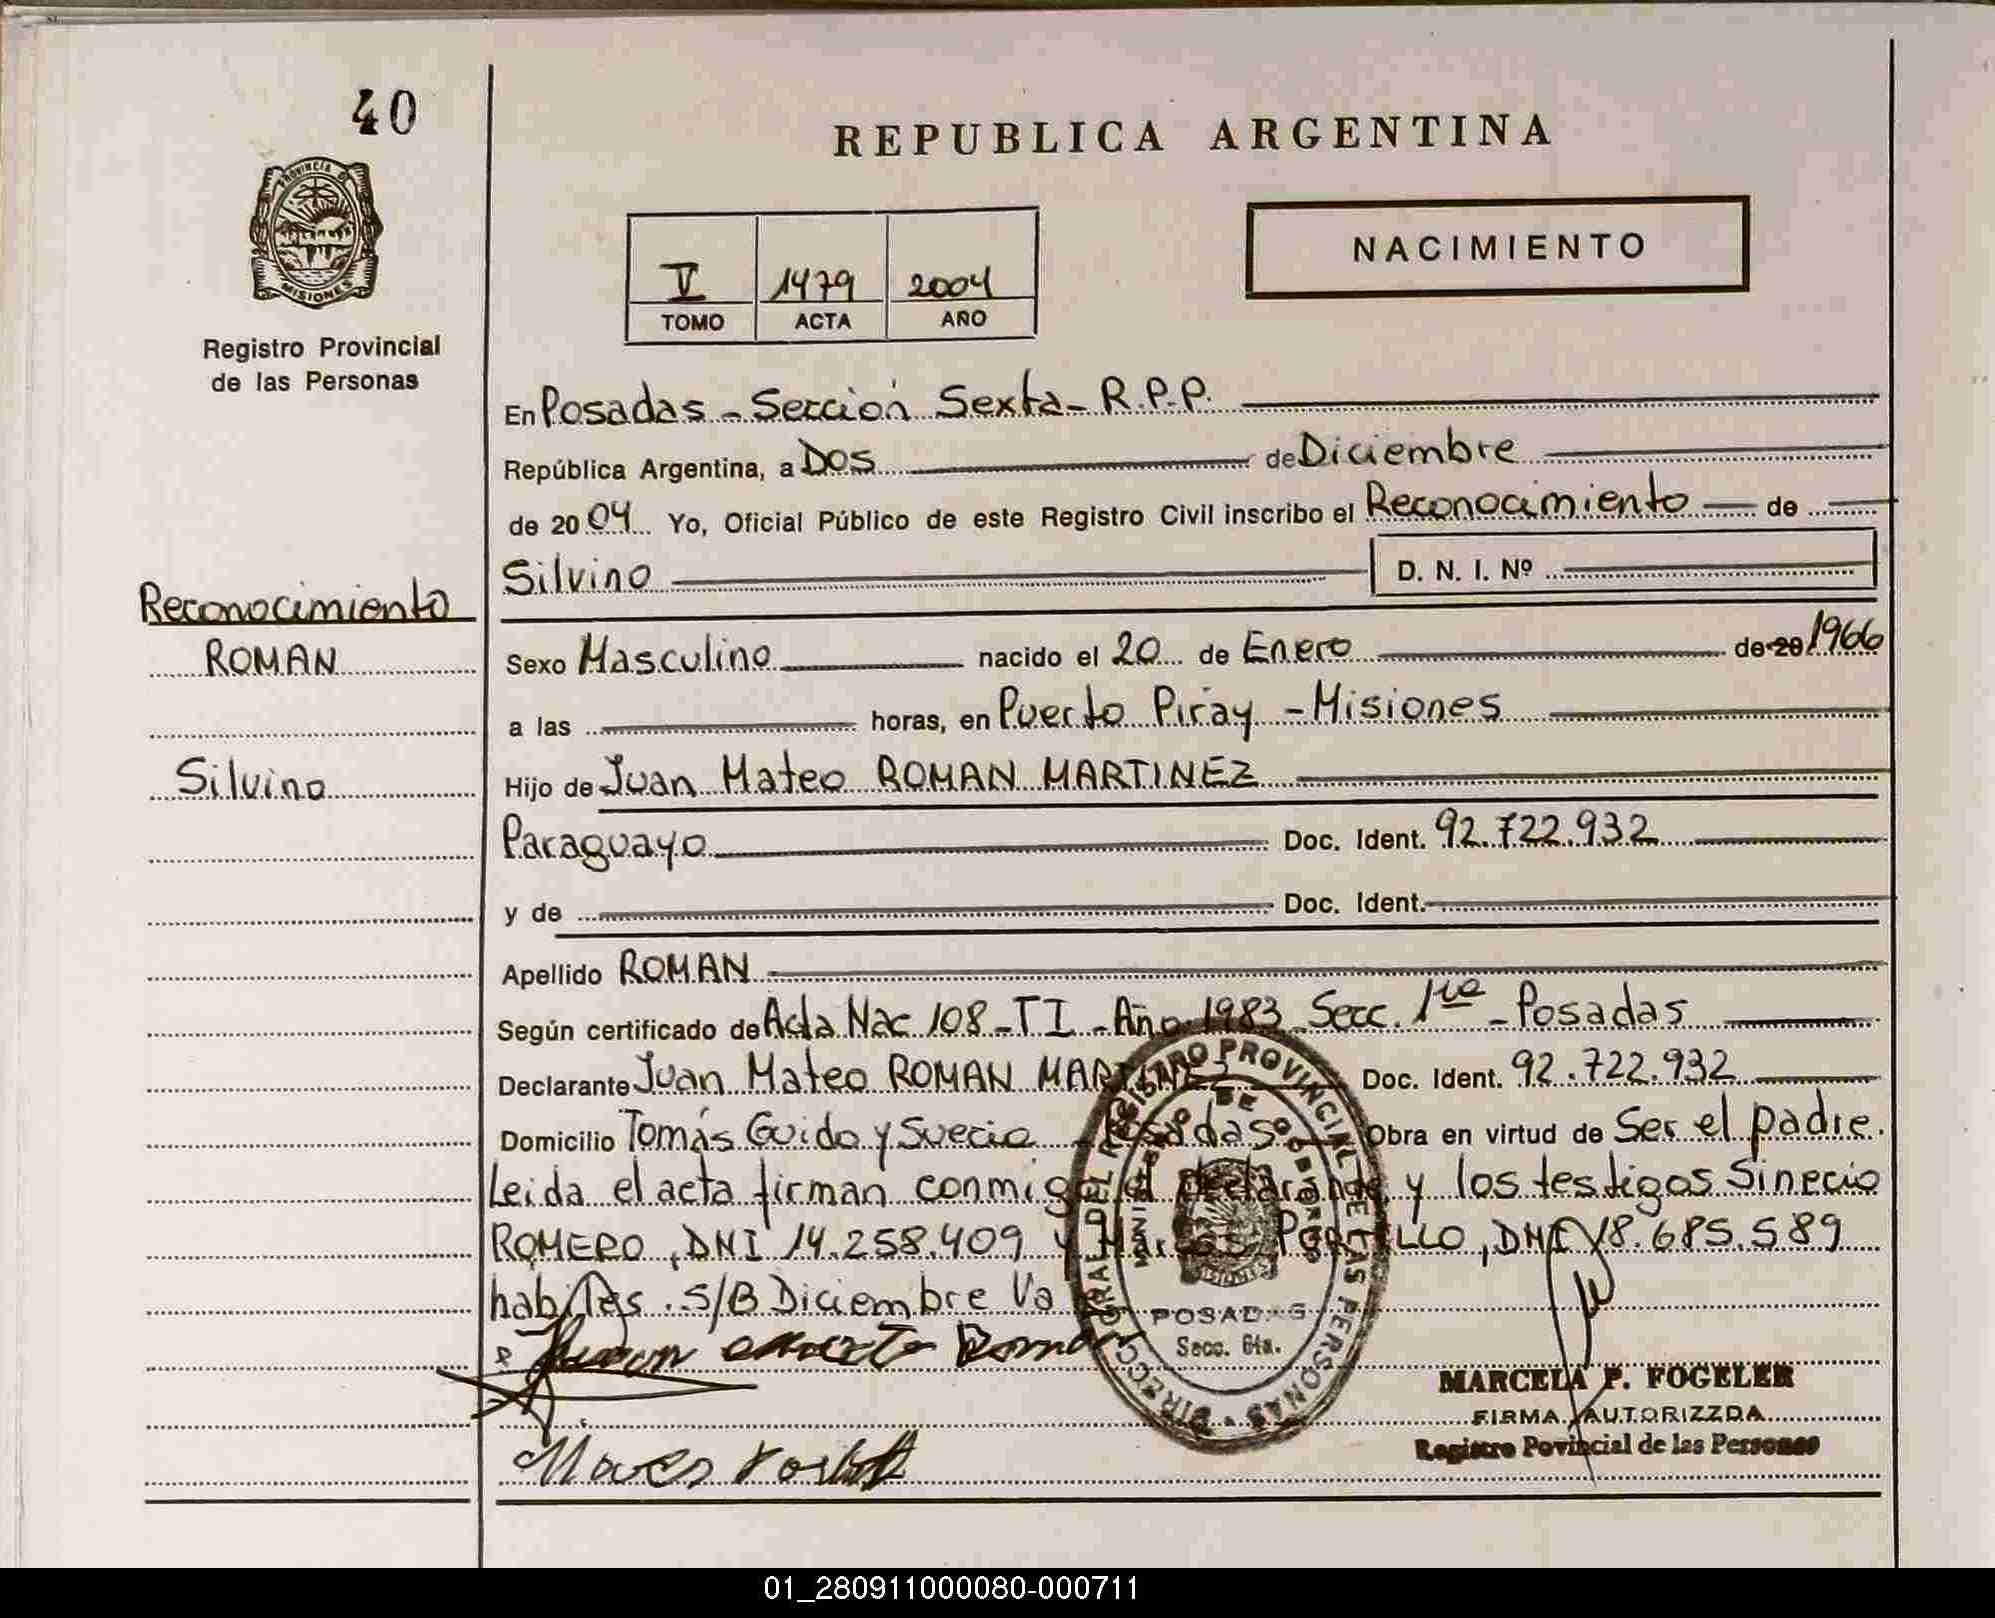 40
REPUBLICA ARGENTINA
PROVINCIA D
MISIONES
NACIMIENTO
V 1479 2004
TOMO ACTA AÑO
Registro Provincial
de las Personas
En Posadas - Sección Sexta - R.P.P.
República Argentina, a Dos de Diciembre
de 20 04 Yo, Oficial Público de este Registro Civil inscribo el Reconocimiento de
Silvino D. N. I. Nº
Reconocimiento
ROMAN
Silvino
Sexo Masculino nacido el 20 de Enero de 20 1966
a las horas, en Puerto Piray - Misiones
Hijo de Juan Mateo ROMAN MARTINEZ
Paraguayo Doc. Ident. 92.722.932
y de Doc. Ident.
Apellido ROMAN
Según certificado de Acta Nac 108 - T I - Año 1983 - Secc. 1ra - Posadas
Declarante Juan Mateo ROMAN MARTINEZ Doc. Ident. 92.722.932
Domicilio Tomás Guido y Suecia - Posadas Obra en virtud de Ser el padre.
Leida el acta firman conmigo el declarante y los testigos Sinecio
ROMERO, DNI 14.258.409 y PORTILLO, DNI 18.685.589
habiles. S/B Diciembre Va
DIRECC GRAL DEL REGISTRO PROVINCIAL DE LAS PERSONAS
MINISTERIO DE GOBIERNO
MISIONES
POSADAS
Secc. 6ta.
MARCELA P. FOGELER
FIRMA AUTORIZZDA
Registro Povincial de las Personas
01_280911000080-000711